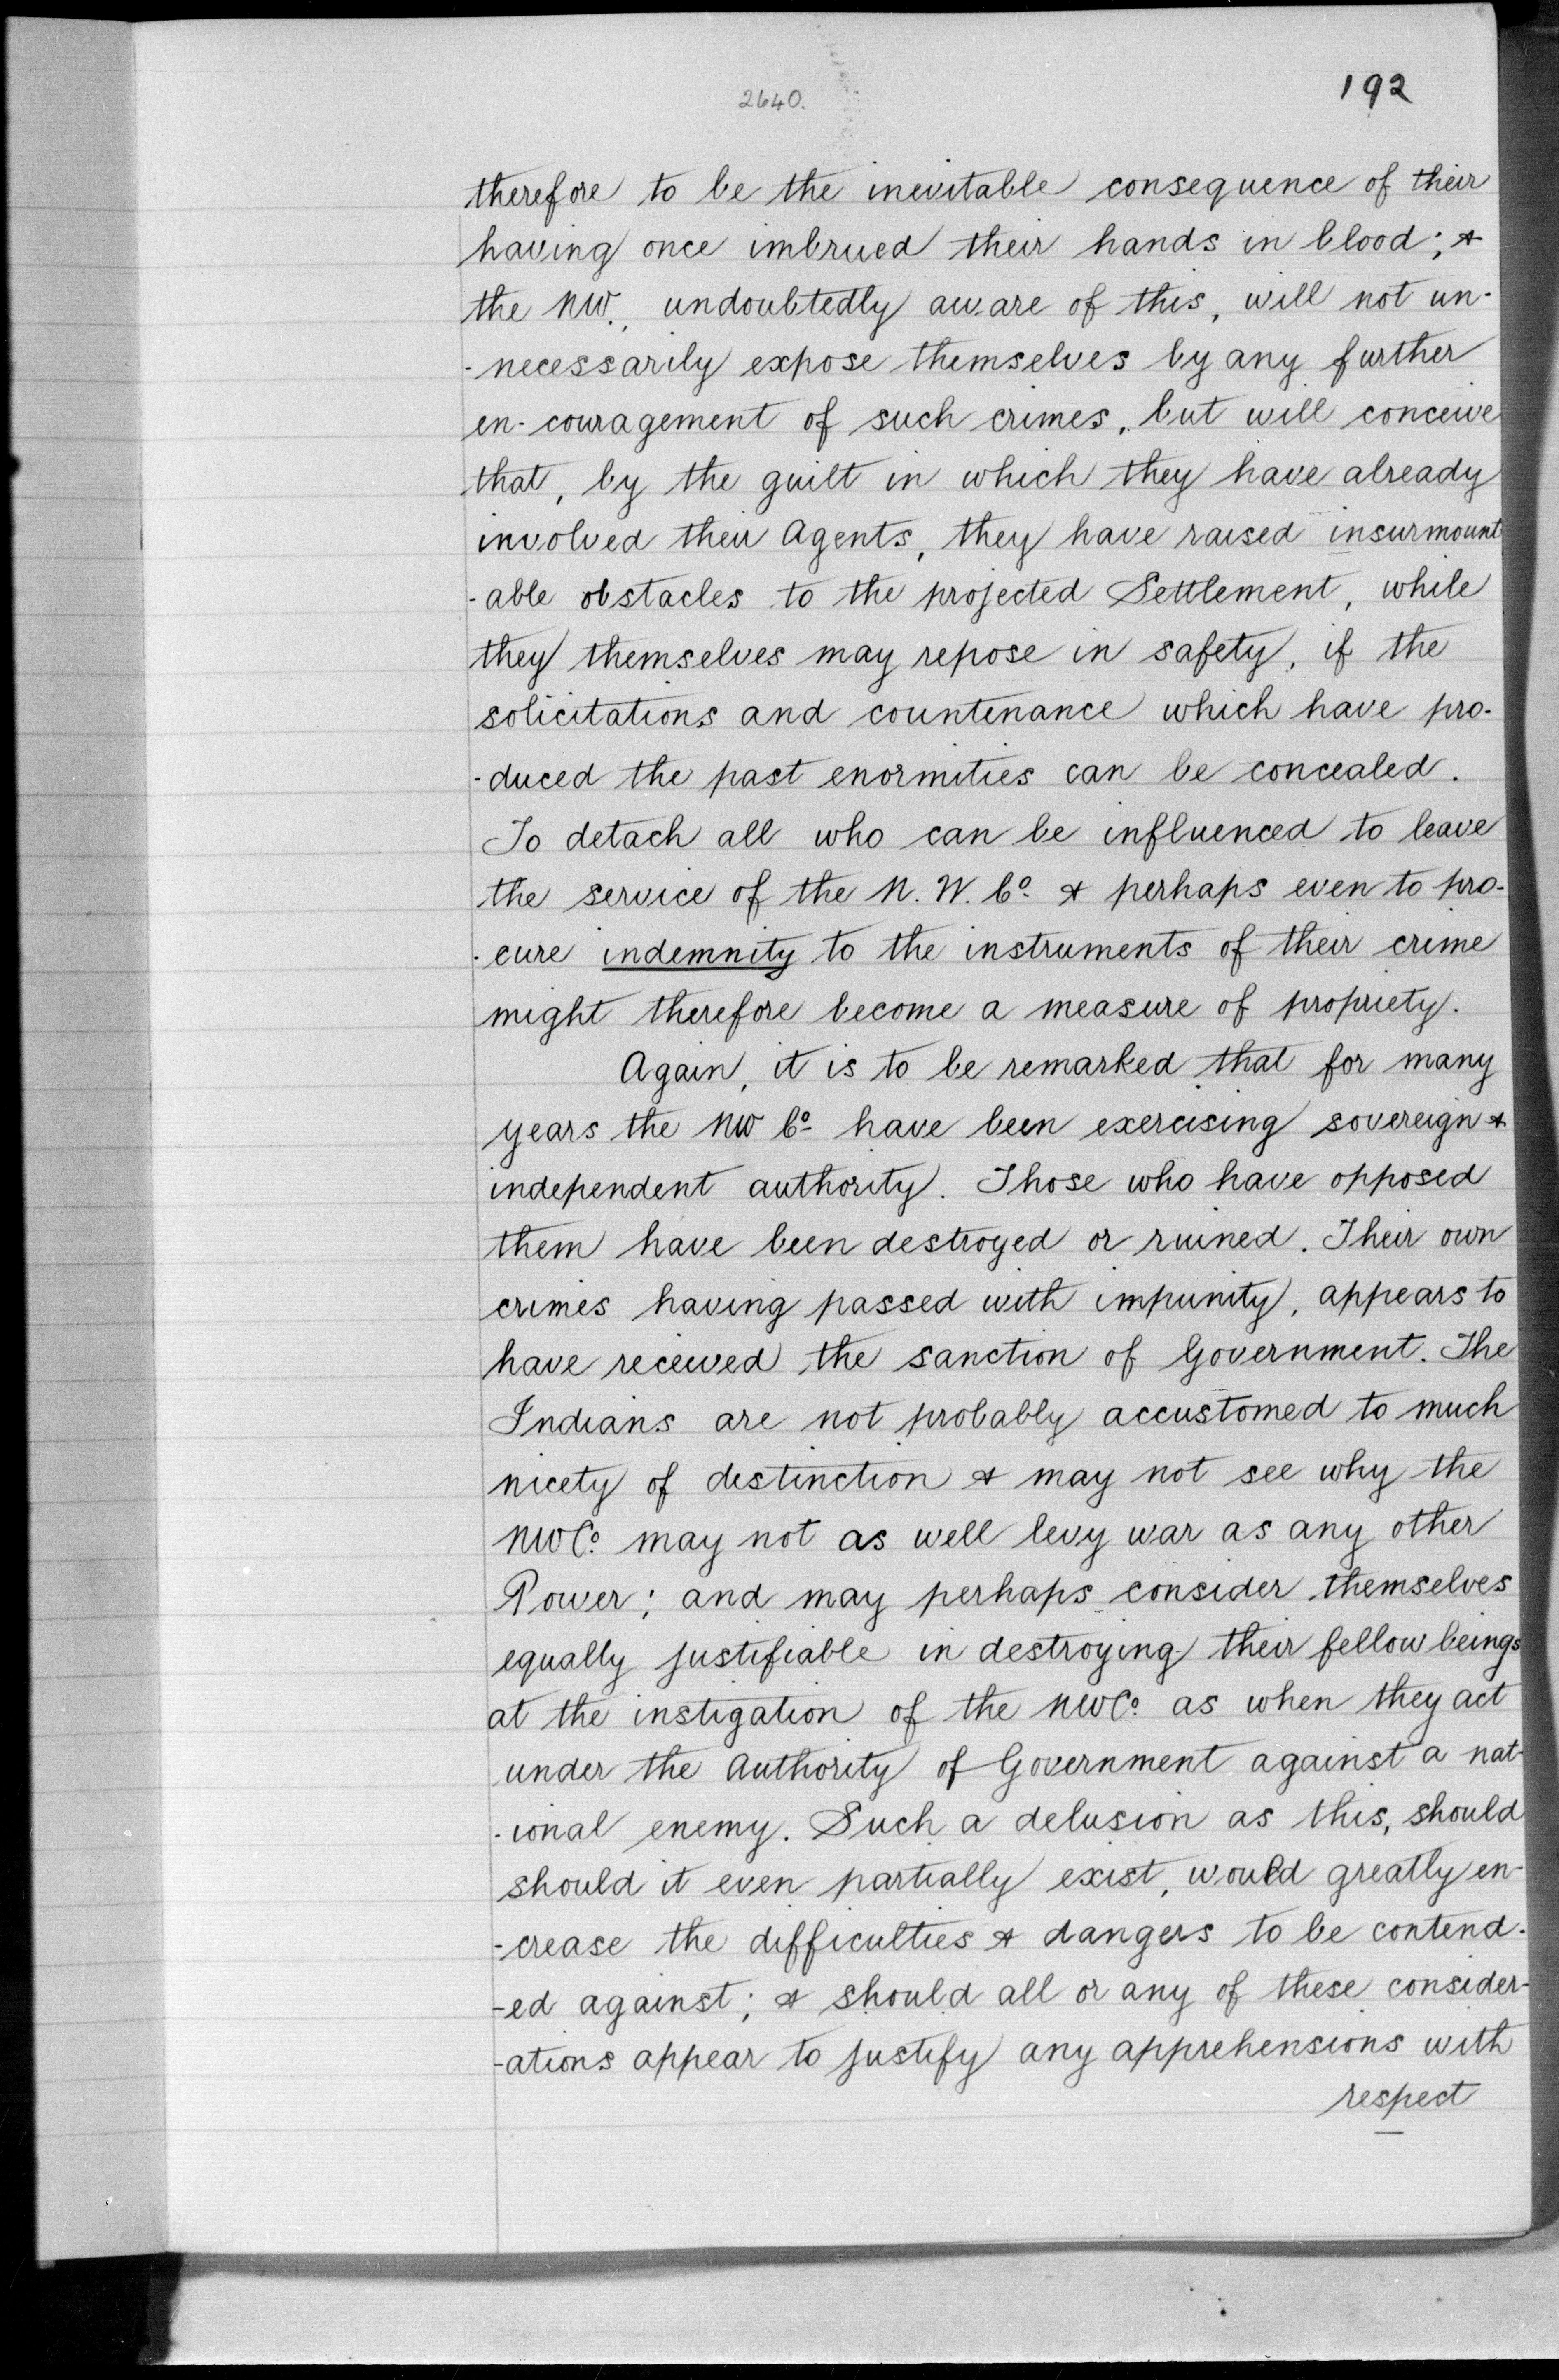 2640.
192
therefore to be the inevitable consequence of their
having once imbrued their hands in blood; &
the NW., undoubtedly aware of this, will not un-
-necessarily expose themselves by any further
en-couragement of such crimes, but will conceive
that, by the guilt in which they have already
involved their Agents, they have raised insurmount
-able obstacles to the projected Settlement, while
they themselves may repose in safety, if the
solicitations and countenance which have pro-
-duced the past enormities can be concealed.
To detach all who can be influenced to leave
the service of the N. W. Co. & perhaps even to pro-
-cure indemnity to the instruments of their crime
might therefore become a measure of propriety.
Again, it is to be remarked that for many
years the NW Co. have been exercising sovereign &
independent authority. Those who have opposed
them have been destroyed or ruined. Their own
crimes having passed with impunity, appears to
have received the sanction of Government. The
Indians are not probably accustomed to much
nicety of distinction & may not see why the
NWCo. may not as well levy war as any other
Power; and may perhaps consider themselves
equally justifiable in destroying their fellow beings
at the instigation of the NWCo. as when they act
under the Authority of Government against a nat-
-ional enemy. Such a delusion as this, should
should it even partially exist, would greatly en-
-crease the difficulties & dangers to be contend-
-ed against; & should all or any of these consider-
-ations appear to justify any apprehensions with
respect